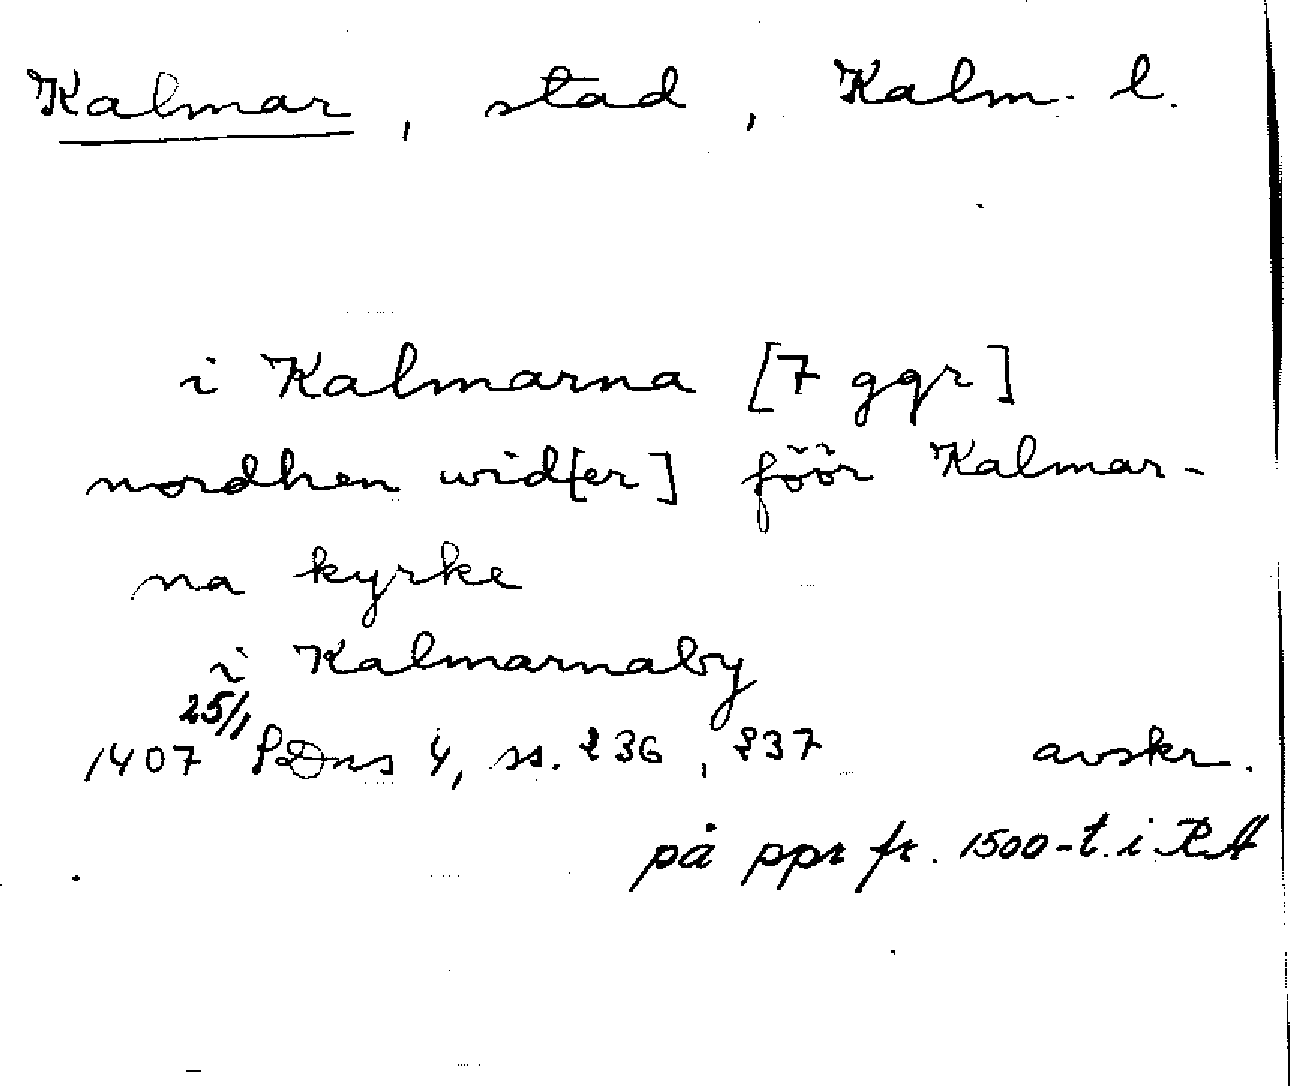 Kalmar, stad, Kalm. l.
i Kalmarna [7 ggr]
nordhen wid[er] föör Kalmar-
na kyrke
i Kalmarnaby
1407 25/1 SDns 4, ss. 236, 237 avskr.
på ppr fr. 1500-t. i RA